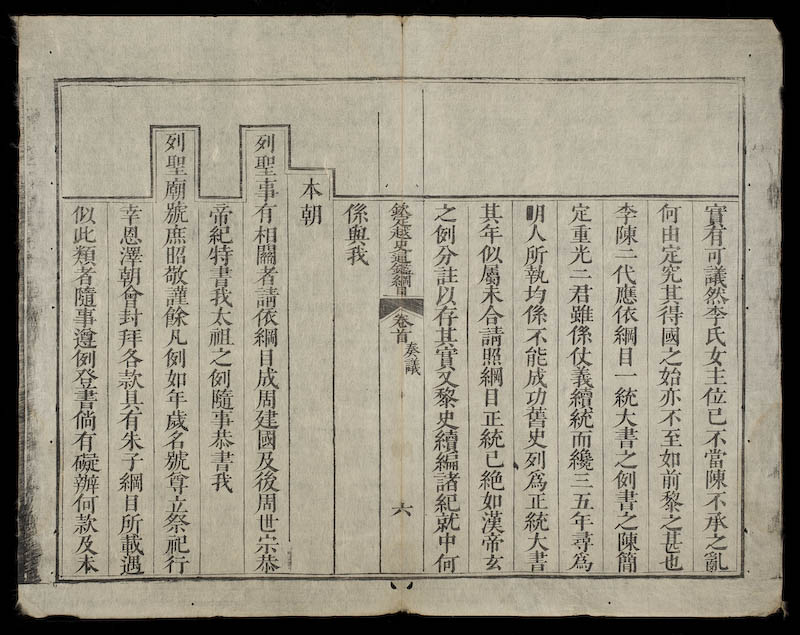 實有可議然李氏女主位已不當陳不承之亂
何由定究其得國之始亦不至如前黎之甚也
李陳二代應依綱目一統大書之例書之陳簡
定重光二君雖係仗義續統而纔三五年尋爲
明人所執均係不能成功舊史列爲正統大書
其年似屬未合請照綱目正統已絶如漢帝玄
之例分註以存其實又黎史續編諸紀就中何
欽定越史通鑑綱目 卷首 奏議 六
係與我
本朝
列聖事有相關者請依綱目成周建國及後周世宗恭
帝紀特書我太祖之例隨事恭書我
列聖廟號庶昭敬謹餘凡例如年歲名號尊立祭祀行
幸恩澤朝會封拜各款具有朱子綱目所載遇
似此類者隨事遵例登書倘有礙辦何款及本